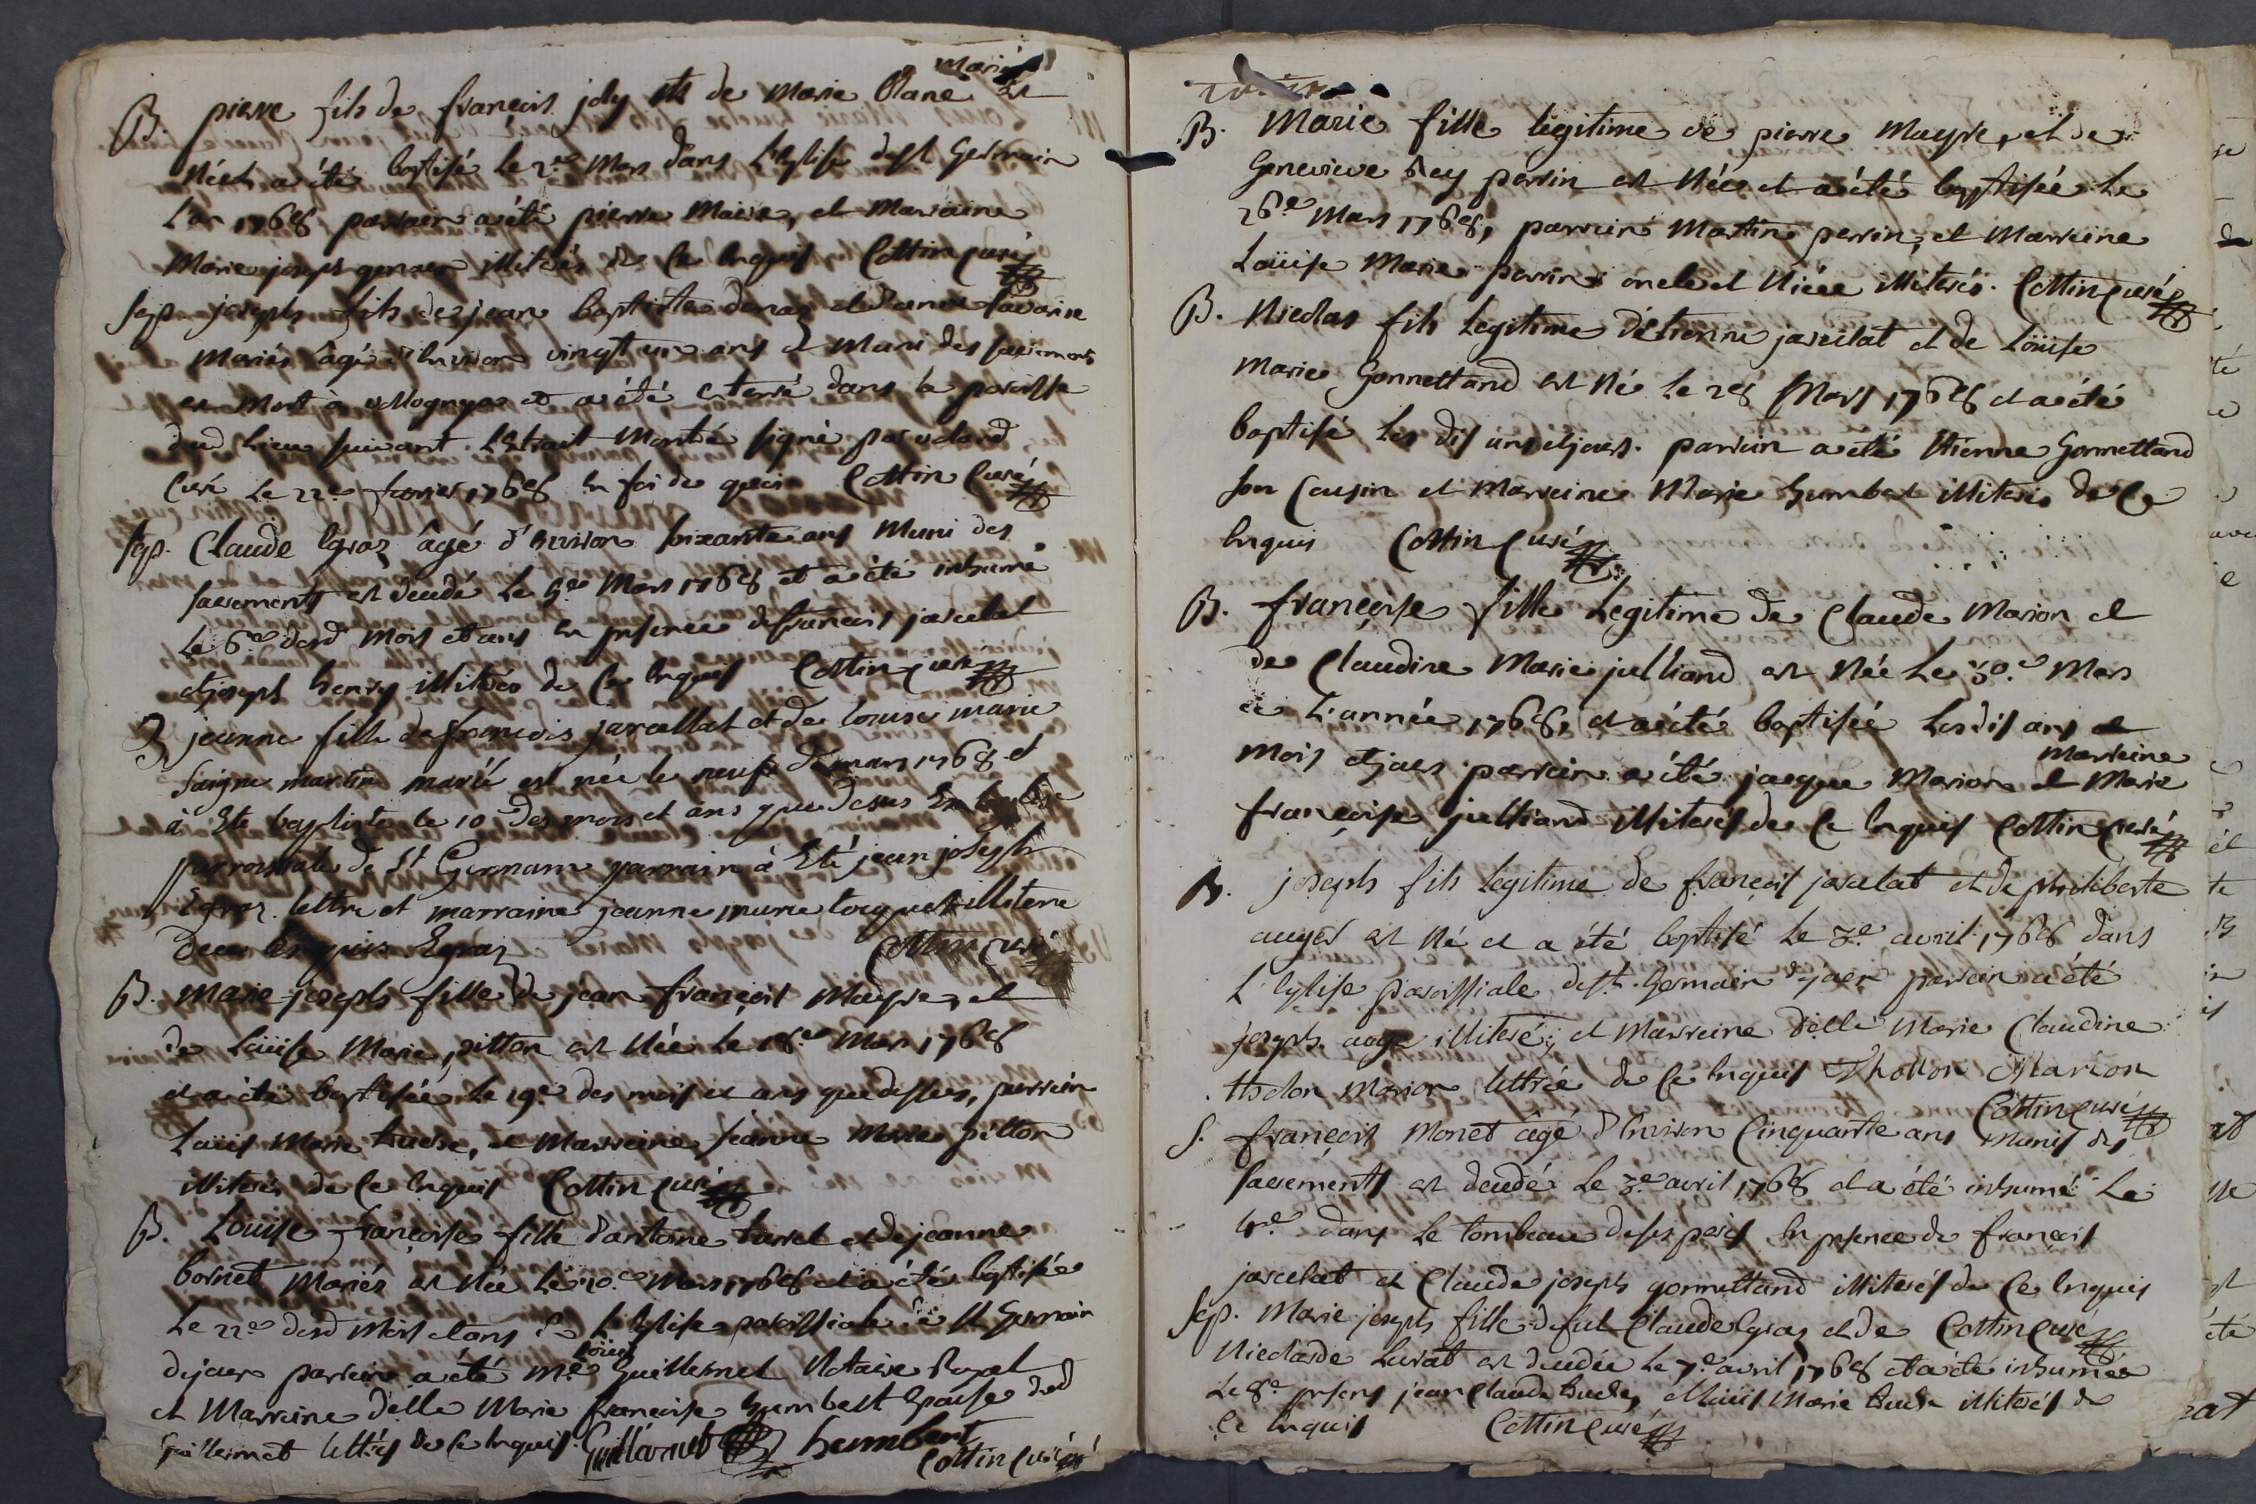 mariés
B. pierre fils de françois joly et de Marie Blanc est
Né et a été baptisé le 2.e Mars dans L'eglise de st Germain
L'an 1768 parrain a été pierre Maire, et Marraine
Marie joseph illiterés de ce enquis Cottin Curé
Sep. joseph fils de jean baptiste et
Mariés âgé d'Environ vingt un ans et Muni des sacrements
est Mort à et a été enterré dans la paroisse
dud. Lieu suivant L'Extrait Monté signé par
Curé Le 22.e 1768 en foi de quoi Cottin Curé
Sep. Claude Egraz âgé d'Environ soixante ans Muni des
sacrements est decedé Le 5.e Mars 1768 et a été inhumé
Le 6.e dud. Mois et ans en presence de françois jarcelat
et joseph henry illiterés de ce enquis Cottin Curé
B jeanne fille de francois jarcellat et de louise marie
martin marié est née le neuf de mars 1768 et
à Eté baptiste le 10 des mois et ans que desus
parroissiale de St Germain parrain à Eté jean joseph
Egraz lettre et marraine jeanne marie illitere
de ce Enquis Egraz Cottin Curé
B. Marie joseph fille de jean françois Mayre, et
de Loüise Marie pitton est Née Le 18.e Mars 1768
et a été baptisée Le 19.e des mois et ans que dessus, parrein
Loüis Marie et Marreine jeanne Marie pitton
illiterés de ce enquis Cottin Curé
B. Louise françoise fille d'antoine et de jeanne
bornet Mariés est Née Le 20.e Mars 1768 et a été baptisée
Le 22.e dud. Mois et ans L'Eglise paroissiale de St Germain
Loüis
de joux parrein a été M.e Guillermet Notaire Royal
et Marreine d'elle Marie françoise humbert Epouse dud.
Guillermet lettrés de ce enquis Guillermet humbert
Cottin Curé
B. Marie fille legitime de pierre Mayre, et de
Genevieve Rey perrin est Née et a été baptisée Le
26.e Mars 1768, parrein Martin perrin, et Marreine
Loüise Marie perrin oncle et Niéce illiterés. Cottin Curé
B. Nicolas fils Legitime d'Etienne jarcelat et de Loüise
Marie Gonnettand est Né Le 28 Mars 1768 et a été
baptisé Les dis ans et jours. parrein a été Etienne Gonnettand
son Cousin et Marreine Marie humbert illiterés de ce
enquis Cottin Curé
B. françoise fille Legitime de Claude Marion et
de Claudine Marie julliand est Née Le 30.e Mars
de L'année 1768, et a été baptisée Lesdis ans et
marreine
Mois et jours parrein a été jacque Marion et Marie
françoise julliand illiterés de ce enquis Cottin Curé
B. joseph fils legitime de françois jarcelat et de philiberte
auger est Né et a été baptisé Le 3.e avril 1768 dans
L'Eglise paroissiale de st. Germain de joux parrein a été
joseph auge illiteré; et Marreine d'elle Marie Claudine
tholon Marion lettrée de ce enquis Thollon Marion
Cottin Curé
S. françois Monet âgé d'Environ Cinquante ans Munis des
sacréments est decedé Le 3.e avril 1768 et a été inhumé Le
4.e dans Le tombeau de ses peres en presence de françois
jarcelat et Claude joseph gonnettand illiterés de ce enquis
Cottin Curé
Sep. Marie joseph fille de fut Claude Egraz et de
Nicolarde Lurat est decedée Le 7.e avril 1768 et a été inhumée
Le 8.e presens jean Claude et Loüis Marie illiterés de
ce enquis Cottin Curé